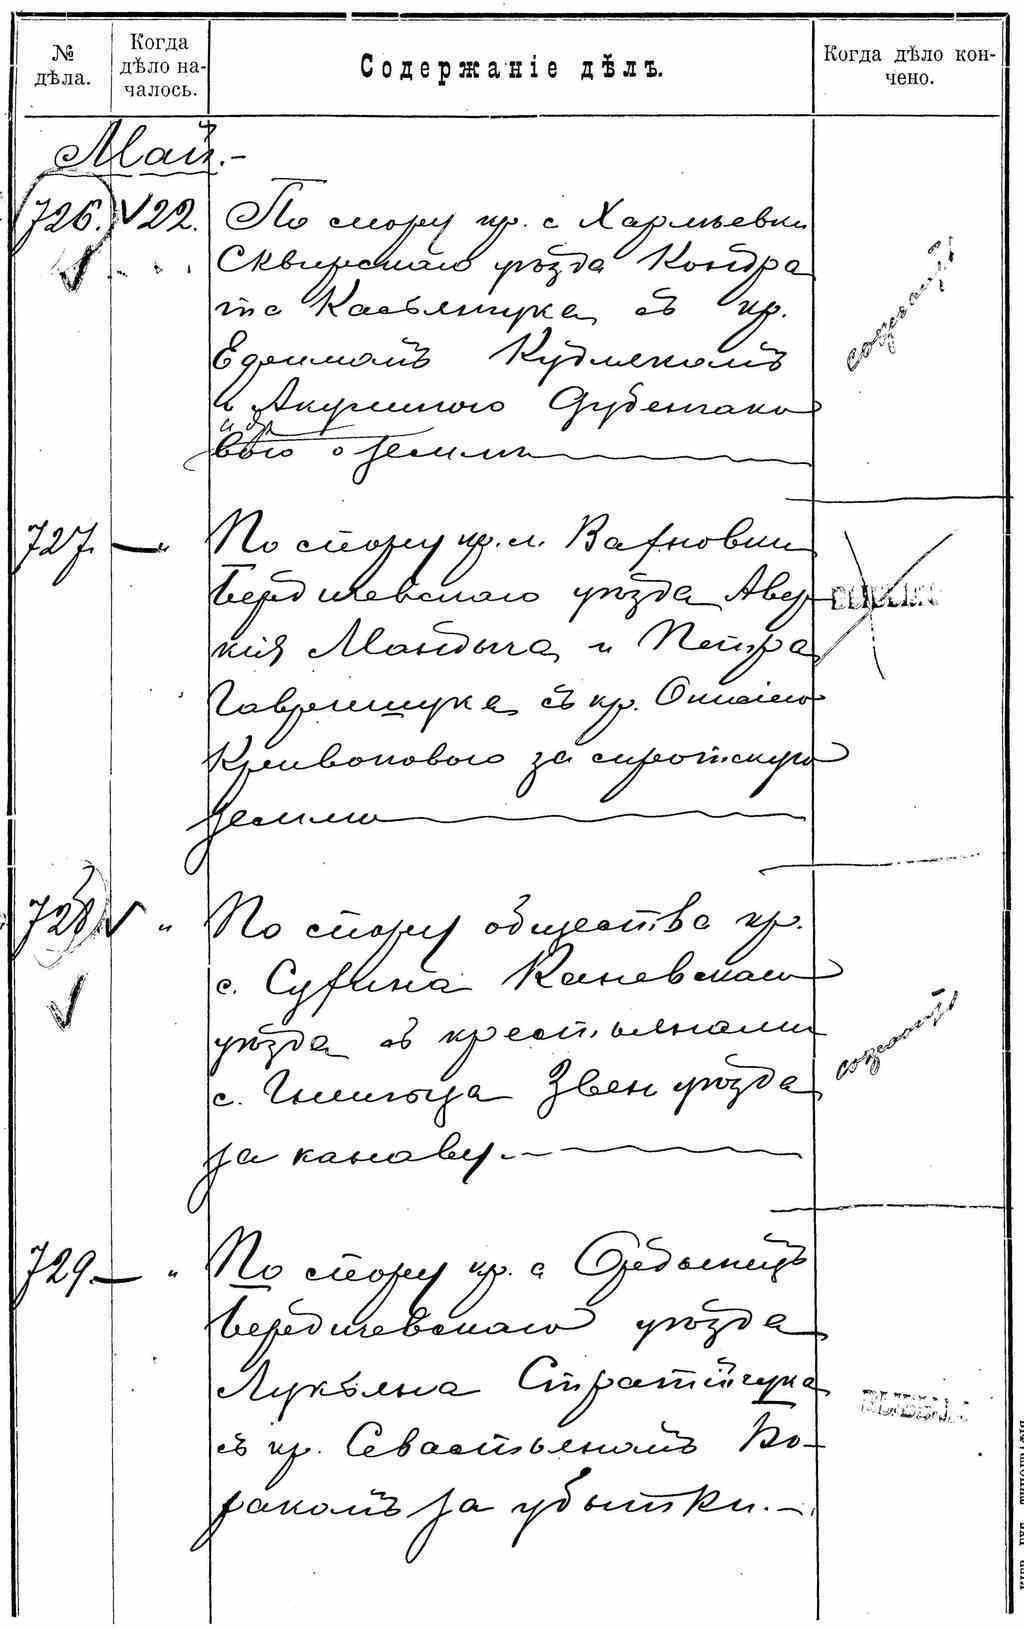 № дѣла.
Когда дѣло началось.
Содержаніе дѣлъ.
Когда дѣло кончено.
Май.-
726. 22. По спору кр. с Хармьевки
Сквирскаго уѣзда Кондра
та Касьянчука съ кр.
Ефимомъ Кудлякомъ
и Акулиною Дубенчако
и др
вою о земли
727. — " По спору кр. м. Вахновки
Бердичевскаго уѣзда Авер
кія Мандыча и Петра
Гаврищука съ кр.
за сиротскую
землю
728 " По спору общества кр.
с. Сухина Каневскаго
уѣзда съ крестьянами
с. Гнильца Звен уѣзда
за канаву.-
729. — " По спору кр. с
Бердичевскаго уѣзда
Лукьяна Стратійчука
съ кр. Севастьяномъ Бо-
ракомъ за убытки.-